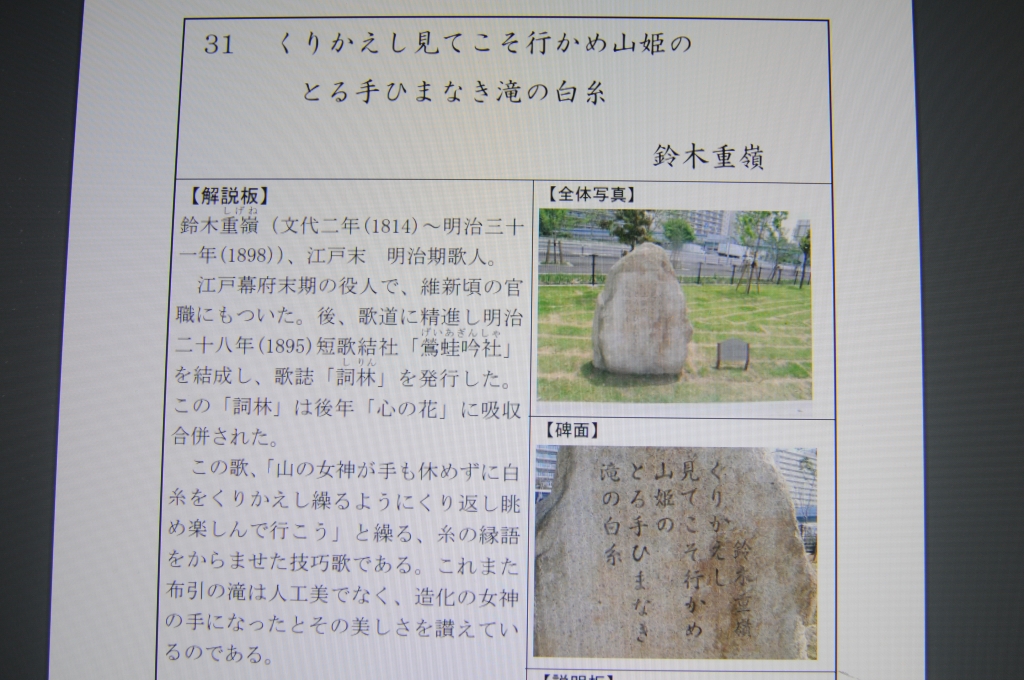 31　くりかえし見てこそ行かめ山姫の
とる手ひまなき滝の白糸
鈴木重嶺
【解説板】
しげね
鈴木重嶺（文代二年(1814)～明治三十
一年(1898)）、江戸末　明治期歌人。
江戸幕府末期の役人で、維新頃の官
職にもついた。後、歌道に精進し明治
げいあぎんしゃ
二十八年(1895)短歌結社「鶯蛙吟社」
しりん
を結成し、歌誌「詞林」を発行した。
この「詞林」は後年「心の花」に吸収
合併された。
この歌、「山の女神が手も休めずに白
糸をくりかえし繰るようにくり返し眺
め楽しんで行こう」と繰る、糸の縁語
をからませた技巧歌である。これまた
布引の滝は人工美でなく、造化の女神
の手になったとその美しさを讃えてい
るのである。
【全体写真】
【碑面】
鈴木重嶺
くりかえし
見てこそ行かめ
山姫の
とる手ひまなき
滝の白糸
【説明板】